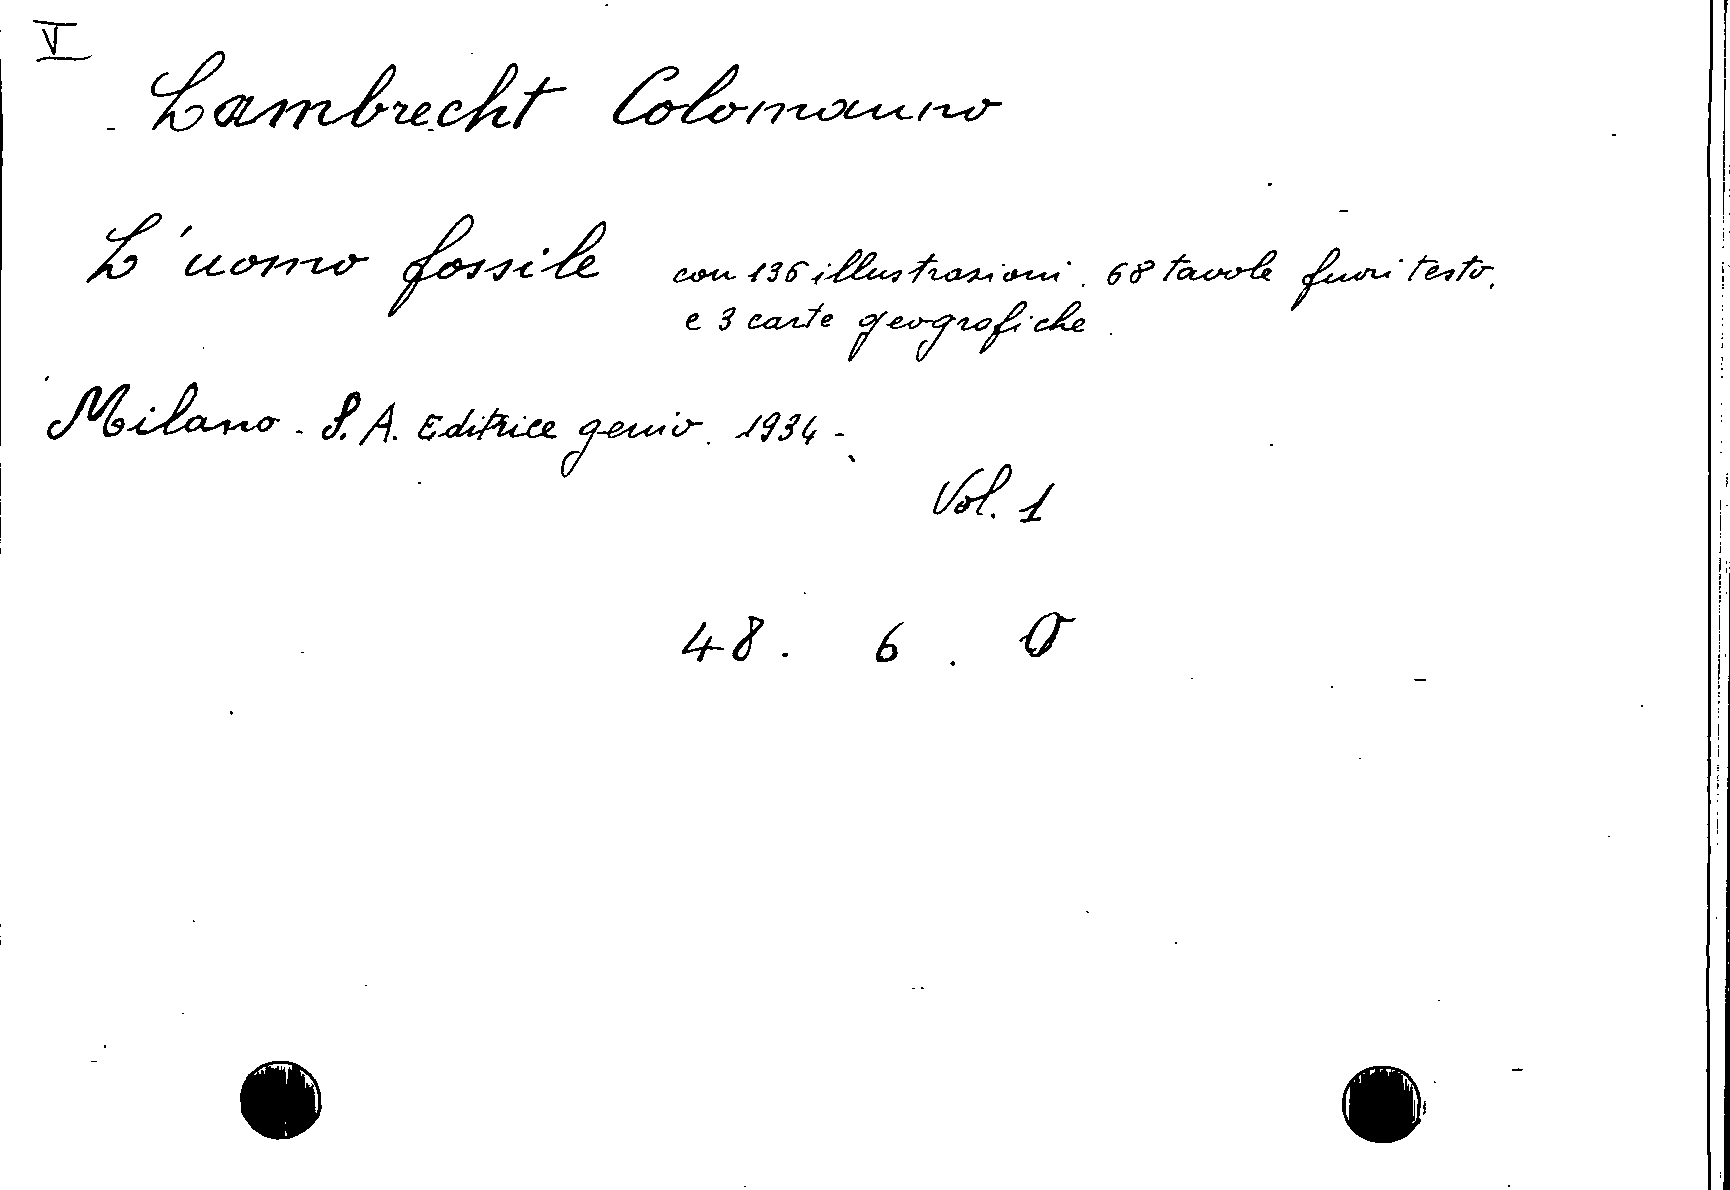 V
Lambrecht Colomanno
L'uomo fossile con 136 illustrazioni. 68 tavole fuori testo.
e 3 carte geografiche.
Milano. S. A. Editrice genio. 1934-
Vol. 1
48. 6. O